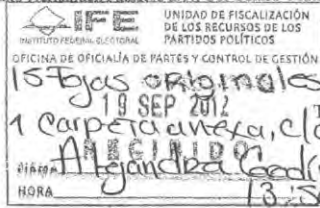 IFE
INSTITUTO FEDERAL ELECTORAL
UNIDAD DE FISCALIZACIÓN
DE LOS RECURSOS DE LOS
PARTIDOS POLÍTICOS
OFICINA DE OFICIALÍA DE PARTES Y CONTROL DE GESTIÓN
15 Fojas originales
19 SEP 2012
1 carpeta anexa, c/
RECIBIDO
Alejandra
HORA 13:5